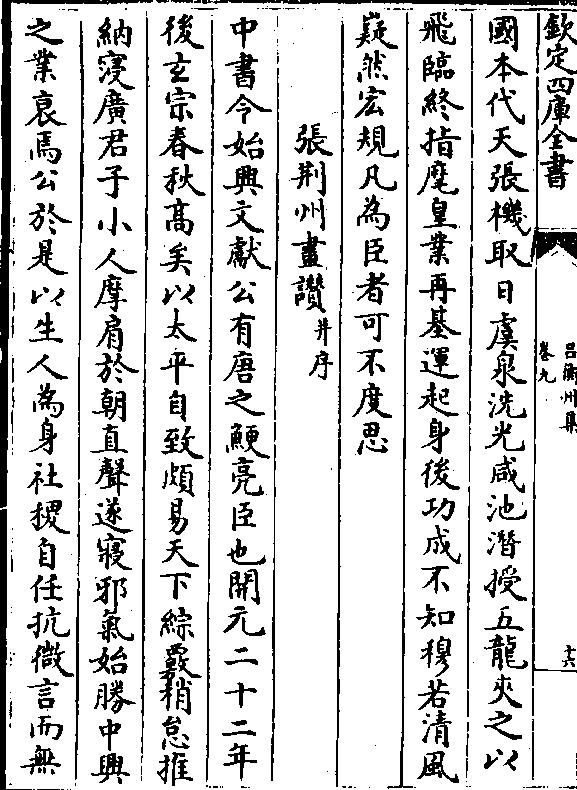 欽定四庫全書
呂衡州集
卷九
十六
國本代天張機取日虞泉洗光咸池潛授五龍夾之以
飛臨終指麾皇業再基運起身後功成不知穆若清風
嶷然宏規凡為臣者可不度思
張荆州畫讚并序
中書令始興文獻公有唐之鯁亮臣也開元二十二年
後玄宗春秋髙矣以太平自致頗易天下綜覈稍怠推
納寖廣君子小人摩肩於朝直聲遂寢邪氣始勝中興
之業衰焉公於是以生人為身社稷自任抗微言而無